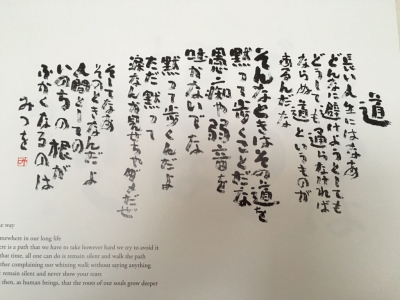 道
長い人生にはなあ
どんなに避けようとしても
どうしても通らなければ
ならぬ道というものが
あるんだな
そんなときはその道を
黙って歩くことだな
愚痴や弱音を
吐かないでな
黙って歩くんだよ
ただ黙って
涙なんか見せちゃダメだぜ
そしてなあ
そのときなんだよ
人間としての
いのちの根が
ふかくなるのは
みつを
way
mewhere in our long life
ere is a path that we have to take however hard we try to avoid it
that time, all one can do is remain silent and walk the path
ther complaining nor whining walk without saying anything
remain silent and never show your tears
then, as human beings, that the roots of our souls grow deeper